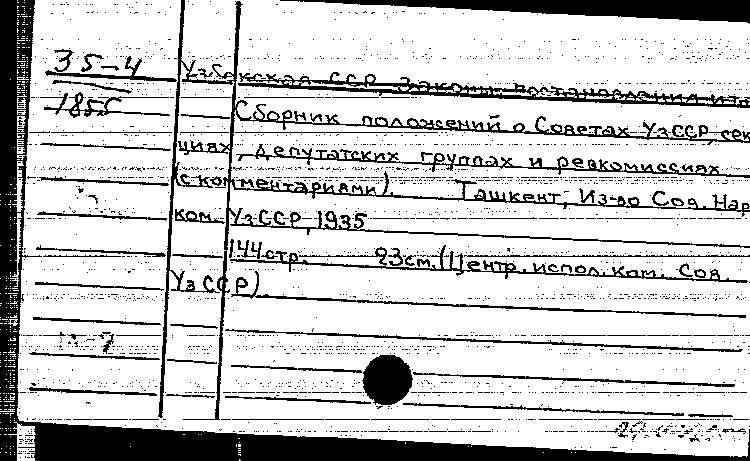 35-4
1855
Узбекская ССР, Законы постановления и т
Сборник положений о Советах УзССР, сек
циях, депутатских группах и ревкомиссиях
(с комментариями). Ташкент, Из-во Сов. Нар
ком. УзССР, 1935
144 стр. 23см. (Центр. испол. ком. Сов.
УзССР)